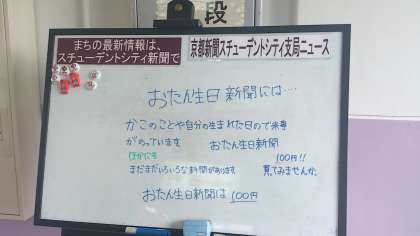 段
まちの最新情報は、
スチューデントシティ新聞で
京都新聞スチューデントシティ支局ニュース
おたん生日新聞には…
かこのことや自分の生まれた日ので来事
がのっています おたん生日新聞
ほかにも 100円!!
まだまだいろいろな新聞があります 買てみませんか。
おたん生日新聞は 100円